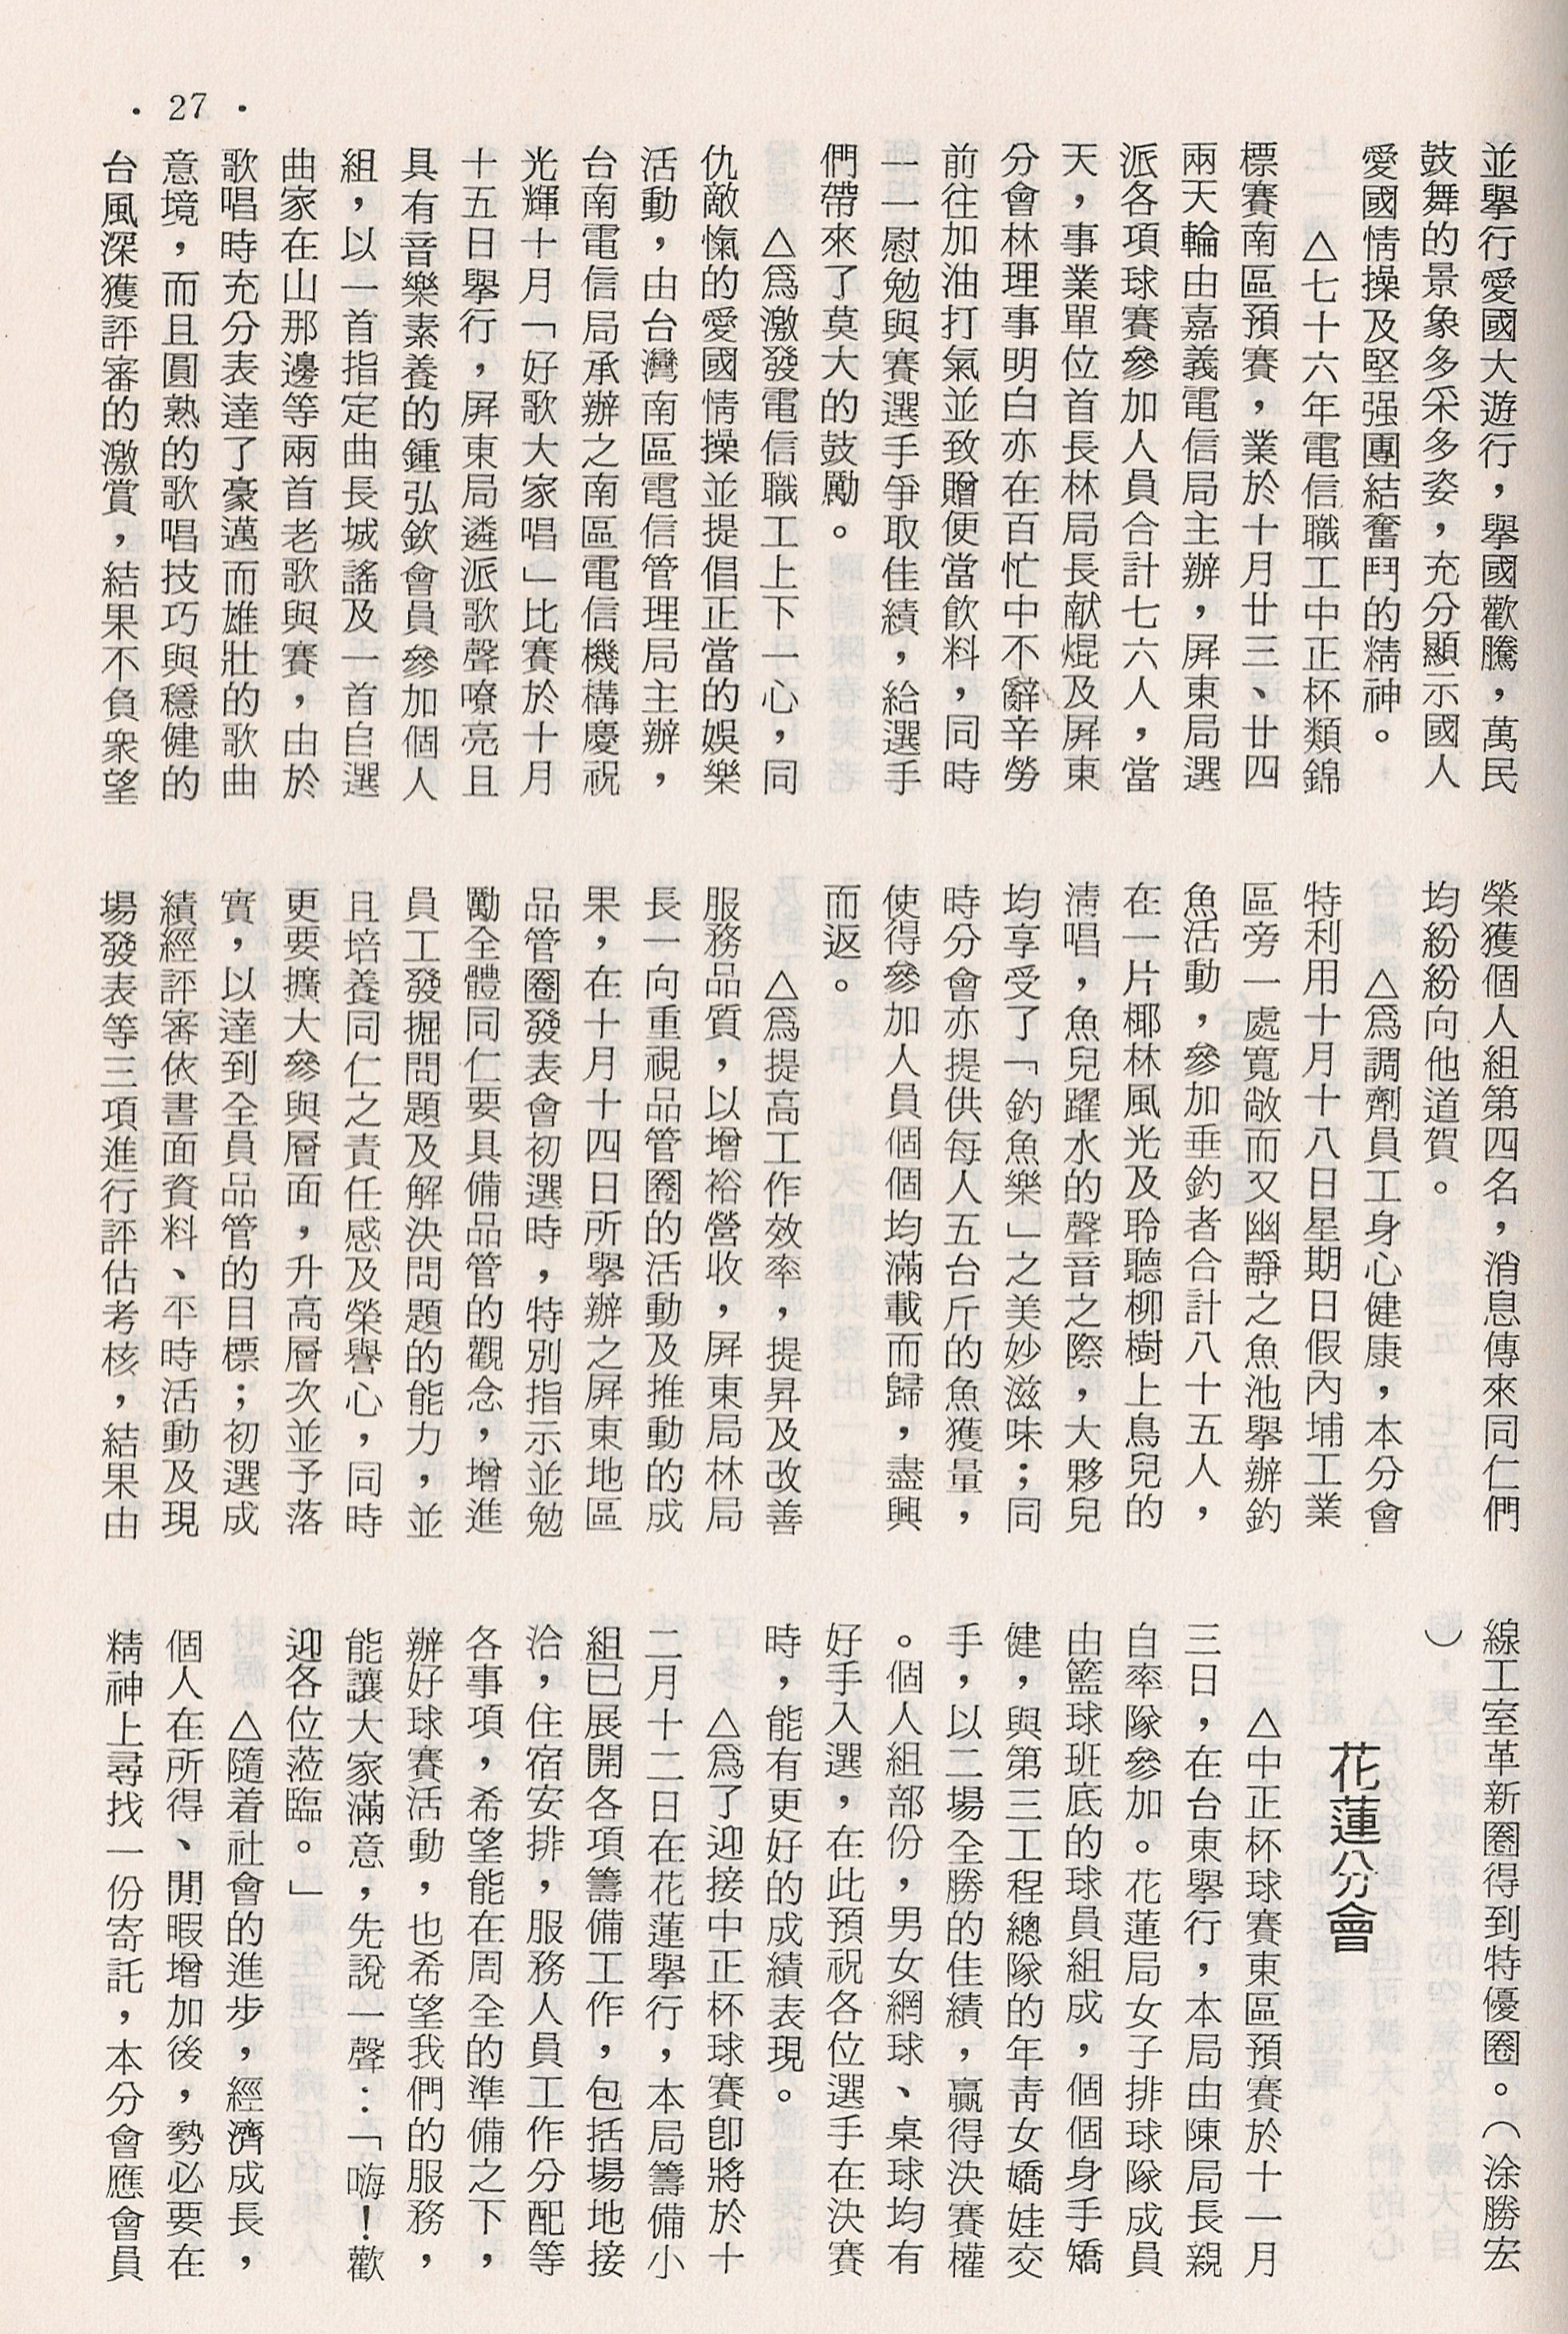 並舉行愛國大遊行，舉國歡騰，萬民
鼓舞的景象多采多姿，充分顯示國人
愛國情操及堅强團結奮鬥的精神。
△七十六年電信職工中正杯類錦
標賽南區預賽，業於十月廿三、廿四
兩天輪由嘉義電信局主辦，屏東局選
派各項球賽參加人員合計七六人，當
天，事業單位首長林局長献焜及屏東
分會林理事明白亦在百忙中不辭辛勞
前往加油打氣並致贈便當飲料，同時
一一慰勉與賽選手爭取佳績，給選手
們帶來了莫大的鼓勵。
△爲激發電信職工上下一心，同
仇敵愾的愛國情操並提倡正當的娛樂
活動，由台灣南區電信管理局主辦，
台南電信局承辦之南區電信機構慶祝
光輝十月「好歌大家唱」比賽於十月
十五日舉行，屏東局遴派歌聲嘹亮且
具有音樂素養的鍾弘欽會員參加個人
組，以一首指定曲長城謠及一首自選
曲家在山那邊等兩首老歌與賽，由於
歌唱時充分表達了豪邁而雄壯的歌曲
意境，而且圓熟的歌唱技巧與穩健的
台風深獲評審的激賞，結果不負衆望
榮獲個人組第四名，消息傳來同仁們
均紛紛向他道賀。
△爲調劑員工身心健康，本分會
特利用十月十八日星期日假內埔工業
區旁一處寬敞而又幽靜之魚池舉辦釣
魚活動，參加垂釣者合計八十五人，
在一片椰林風光及聆聽柳樹上鳥兒的
淸唱，魚兒躍水的聲音之際，大夥兒
均享受了「釣魚樂」之美妙滋味；同
時分會亦提供每人五台斤的魚獲量，
使得參加人員個個均滿載而歸，盡興
而返。
△爲提高工作效率，提昇及改善
服務品質，以增裕營收，屏東局林局
長一向重視品管圈的活動及推動的成
果，在十月十四日所舉辦之屏東地區
品管圈發表會初選時，特別指示並勉
勵全體同仁要具備品管的觀念，增進
員工發掘問題及解決問題的能力，並
且培養同仁之責任感及榮譽心，同時
更要擴大參與層面，升高層次並予落
實，以達到全員品管的目標；初選成
績經評審依書面資料、平時活動及現
場發表等三項進行評估考核，結果由
線工室革新圈得到特優圈。（涂勝宏
）
花蓮分會
△中正杯球賽東區預賽於十一月
三日，在台東舉行，本局由陳局長親
自率隊參加。花蓮局女子排球隊成員
由籃球班底的球員組成，個個身手矯
健，與第三工程總隊的年靑女嬌娃交
手，以二場全勝的佳績，贏得決賽權
。個人組部份，男女網球、桌球均有
好手入選，在此預祝各位選手在決賽
時，能有更好的成績表現。
△爲了迎接中正杯球賽卽將於十
二月十二日在花蓮舉行，本局籌備小
組已展開各項籌備工作，包括場地接
洽，住宿安排，服務人員工作分配等
各事項，希望能在周全的準備之下，
辦好球賽活動，也希望我們的服務，
能讓大家滿意，先說一聲：「嗨！歡
迎各位蒞臨。」
△隨着社會的進步，經濟成長，
個人在所得、閒暇增加後，勢必要在
精神上尋找一份寄託，本分會應會員
· 27 ·